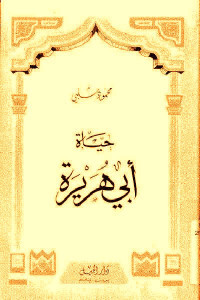 محمود شلبي
حياة
أبي هريرة
دار الجيل